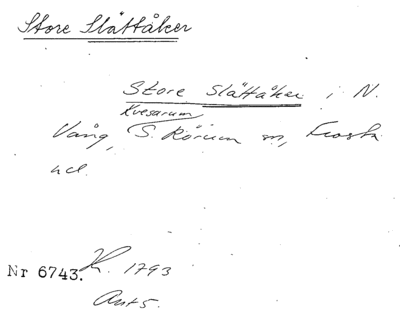 Store Slättåker
Store Slättåker i N.
Kvesarum
Vång, S. Rörum sn, Frosta
hd.
Nr 6743. K. 1793
Ant 5.